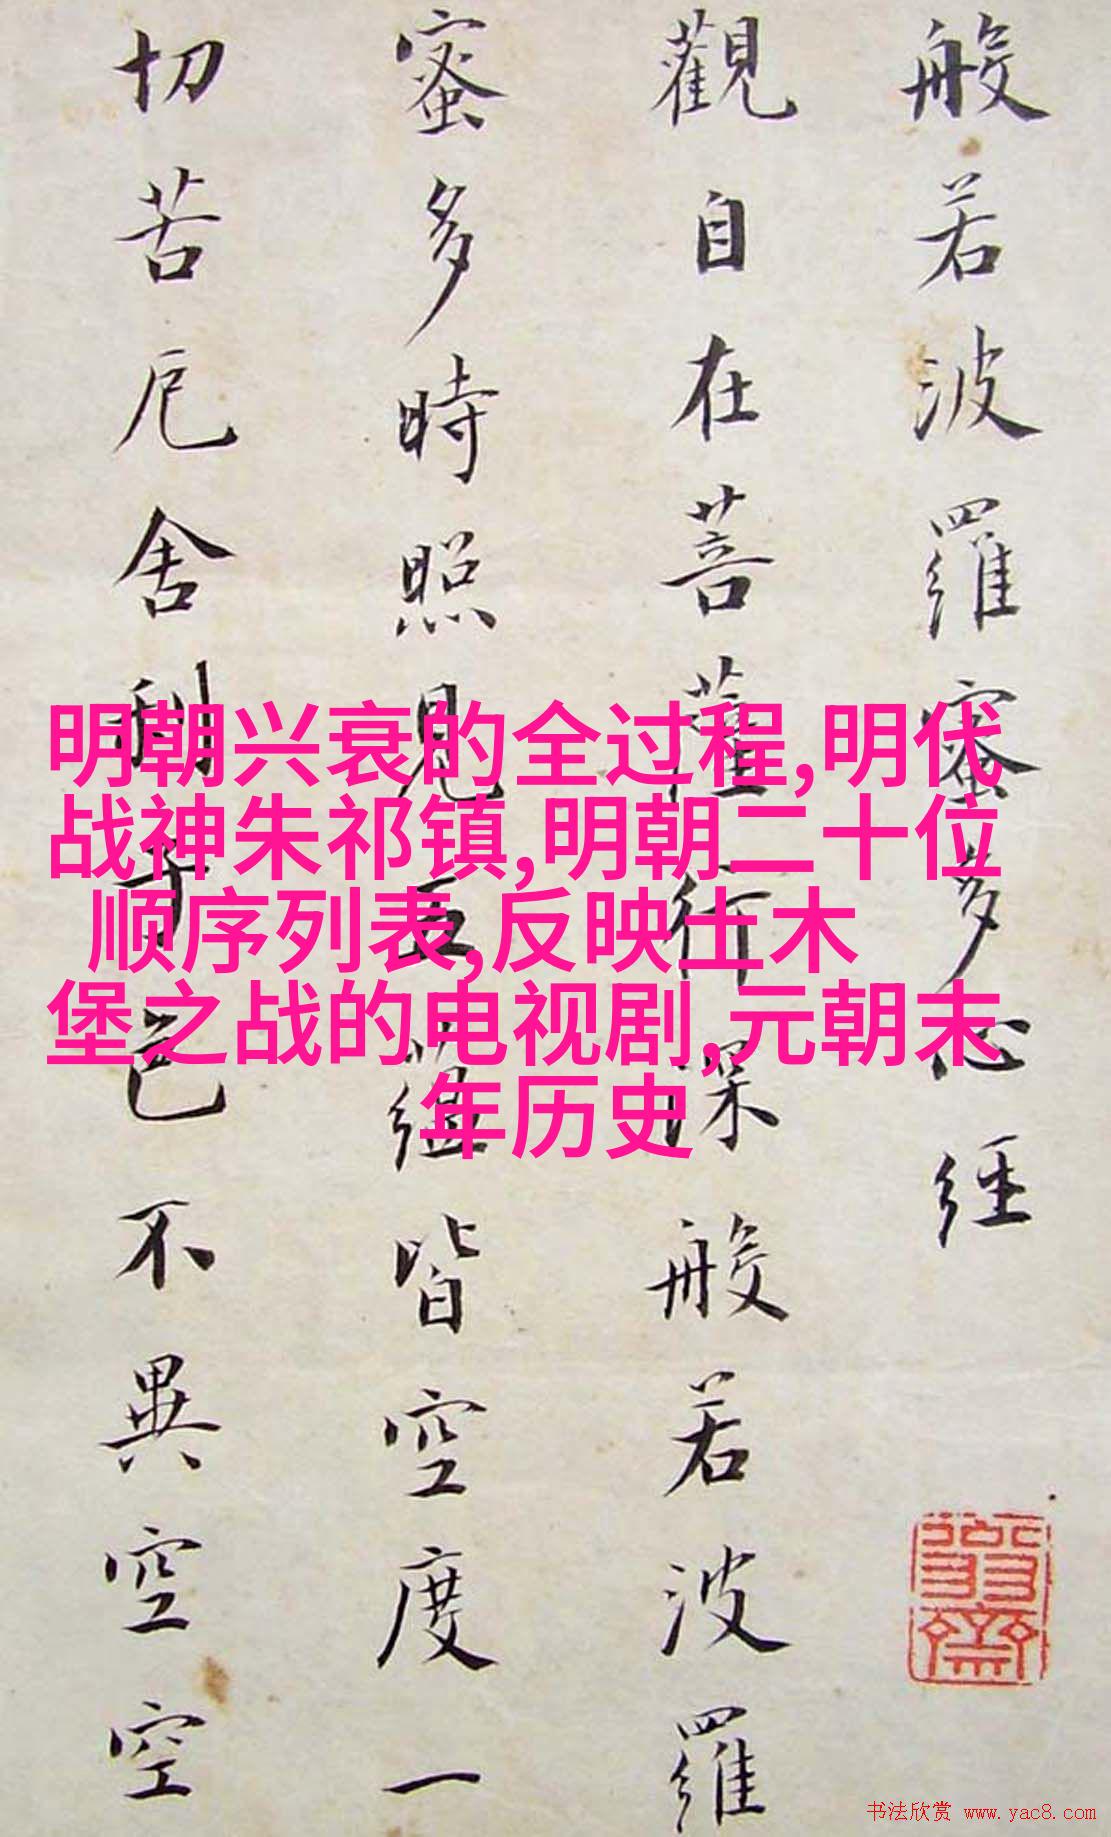 般若波羅蜜多心經
觀自在菩薩行深般若波羅
蜜多時照見五蘊皆空度一
切苦厄舍利子色不異空空
明朝兴衰的全过程,明代
战神朱祁镇,明朝二十位
顺序列表,反映土木
堡之战的电视剧,元朝末
年历史
书法欣赏 www.yac8.com